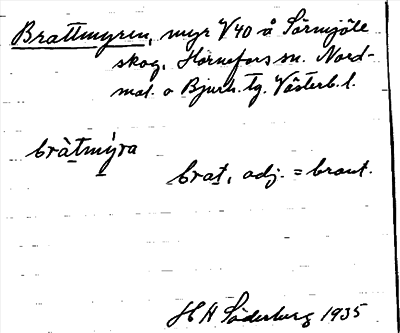 Brattmyren, myr V40 å Sörmjöle
skog, Hörnefors sn. Nord-
mal. o Bjurh. tg. Västerb. l.
bràtmýra
brat, adj. = brant.
H H Söderberg 1935